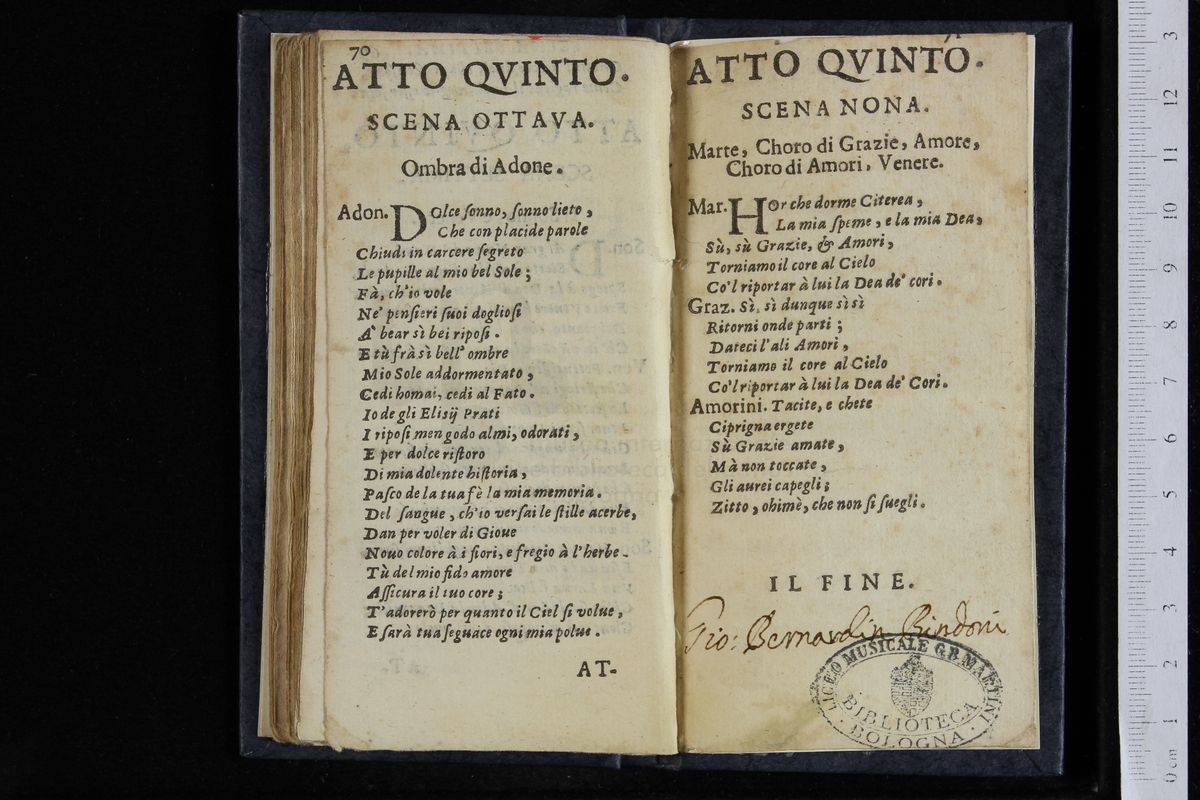 70
ATTO QVINTO.
SCENA OTTAVA.
Ombra di Adone.
Adon. DOlce ſonno, ſonno lieto,
Che con placide parole
Chiudi in carcere ſegreto
Le pupille al mio bel Sole;
Fà, ch'io vole
Ne' penſieri ſuoi doglioſi
A' bear sì bei ripoſi.
E tù frà sì bell' ombre
Mio Sole addormentato,
Cedi homai, cedi al Fato.
Io de gli Elisij Prati
I ripoſi men godo almi, odorati,
E per dolce riſtoro
Di mia dolente hiſtoria,
Paſco de la tua fè la mia memoria.
Del ſangue, ch'io verſai le ſtille acerbe,
Dan per voler di Gioue
Nouo colore à i fiori, e fregio à l'herbe.
Tù del mio fido amore
Aſſicura il tuo core;
T'adorerò per quanto il Ciel ſi volue,
E ſarà tua ſeguace ogni mia polue.
AT-
71
ATTO QVINTO.
SCENA NONA.
Marte, Choro di Grazie, Amore,
Choro di Amori, Venere.
Mar. HOr che dorme Citerea,
La mia ſpeme, e la mia Dea,
Sù, sù Grazie, & Amori,
Torniamo il core al Cielo
Co'l riportar à lui la Dea de' cori.
Graz. Sì, sì dunque sì sì
Ritorni onde partì;
Dateci l'ali Amori,
Torniamo il core al Cielo
Co'l riportar à lui la Dea de' Cori.
Amorini. Tacite, e chete
Ciprigna ergete
Sù Grazie amate,
Mà non toccate,
Gli aurei capegli;
Zitto, ohimè, che non ſi ſuegli.
IL FINE.
Gio: Bernardin Bindoni
LICEO MUSICALE G.B. MARTINI
BIBLIOTECA
BOLOGNA
0 cm 1 2 3 4 5 6 7 8 9 10 11 12 3